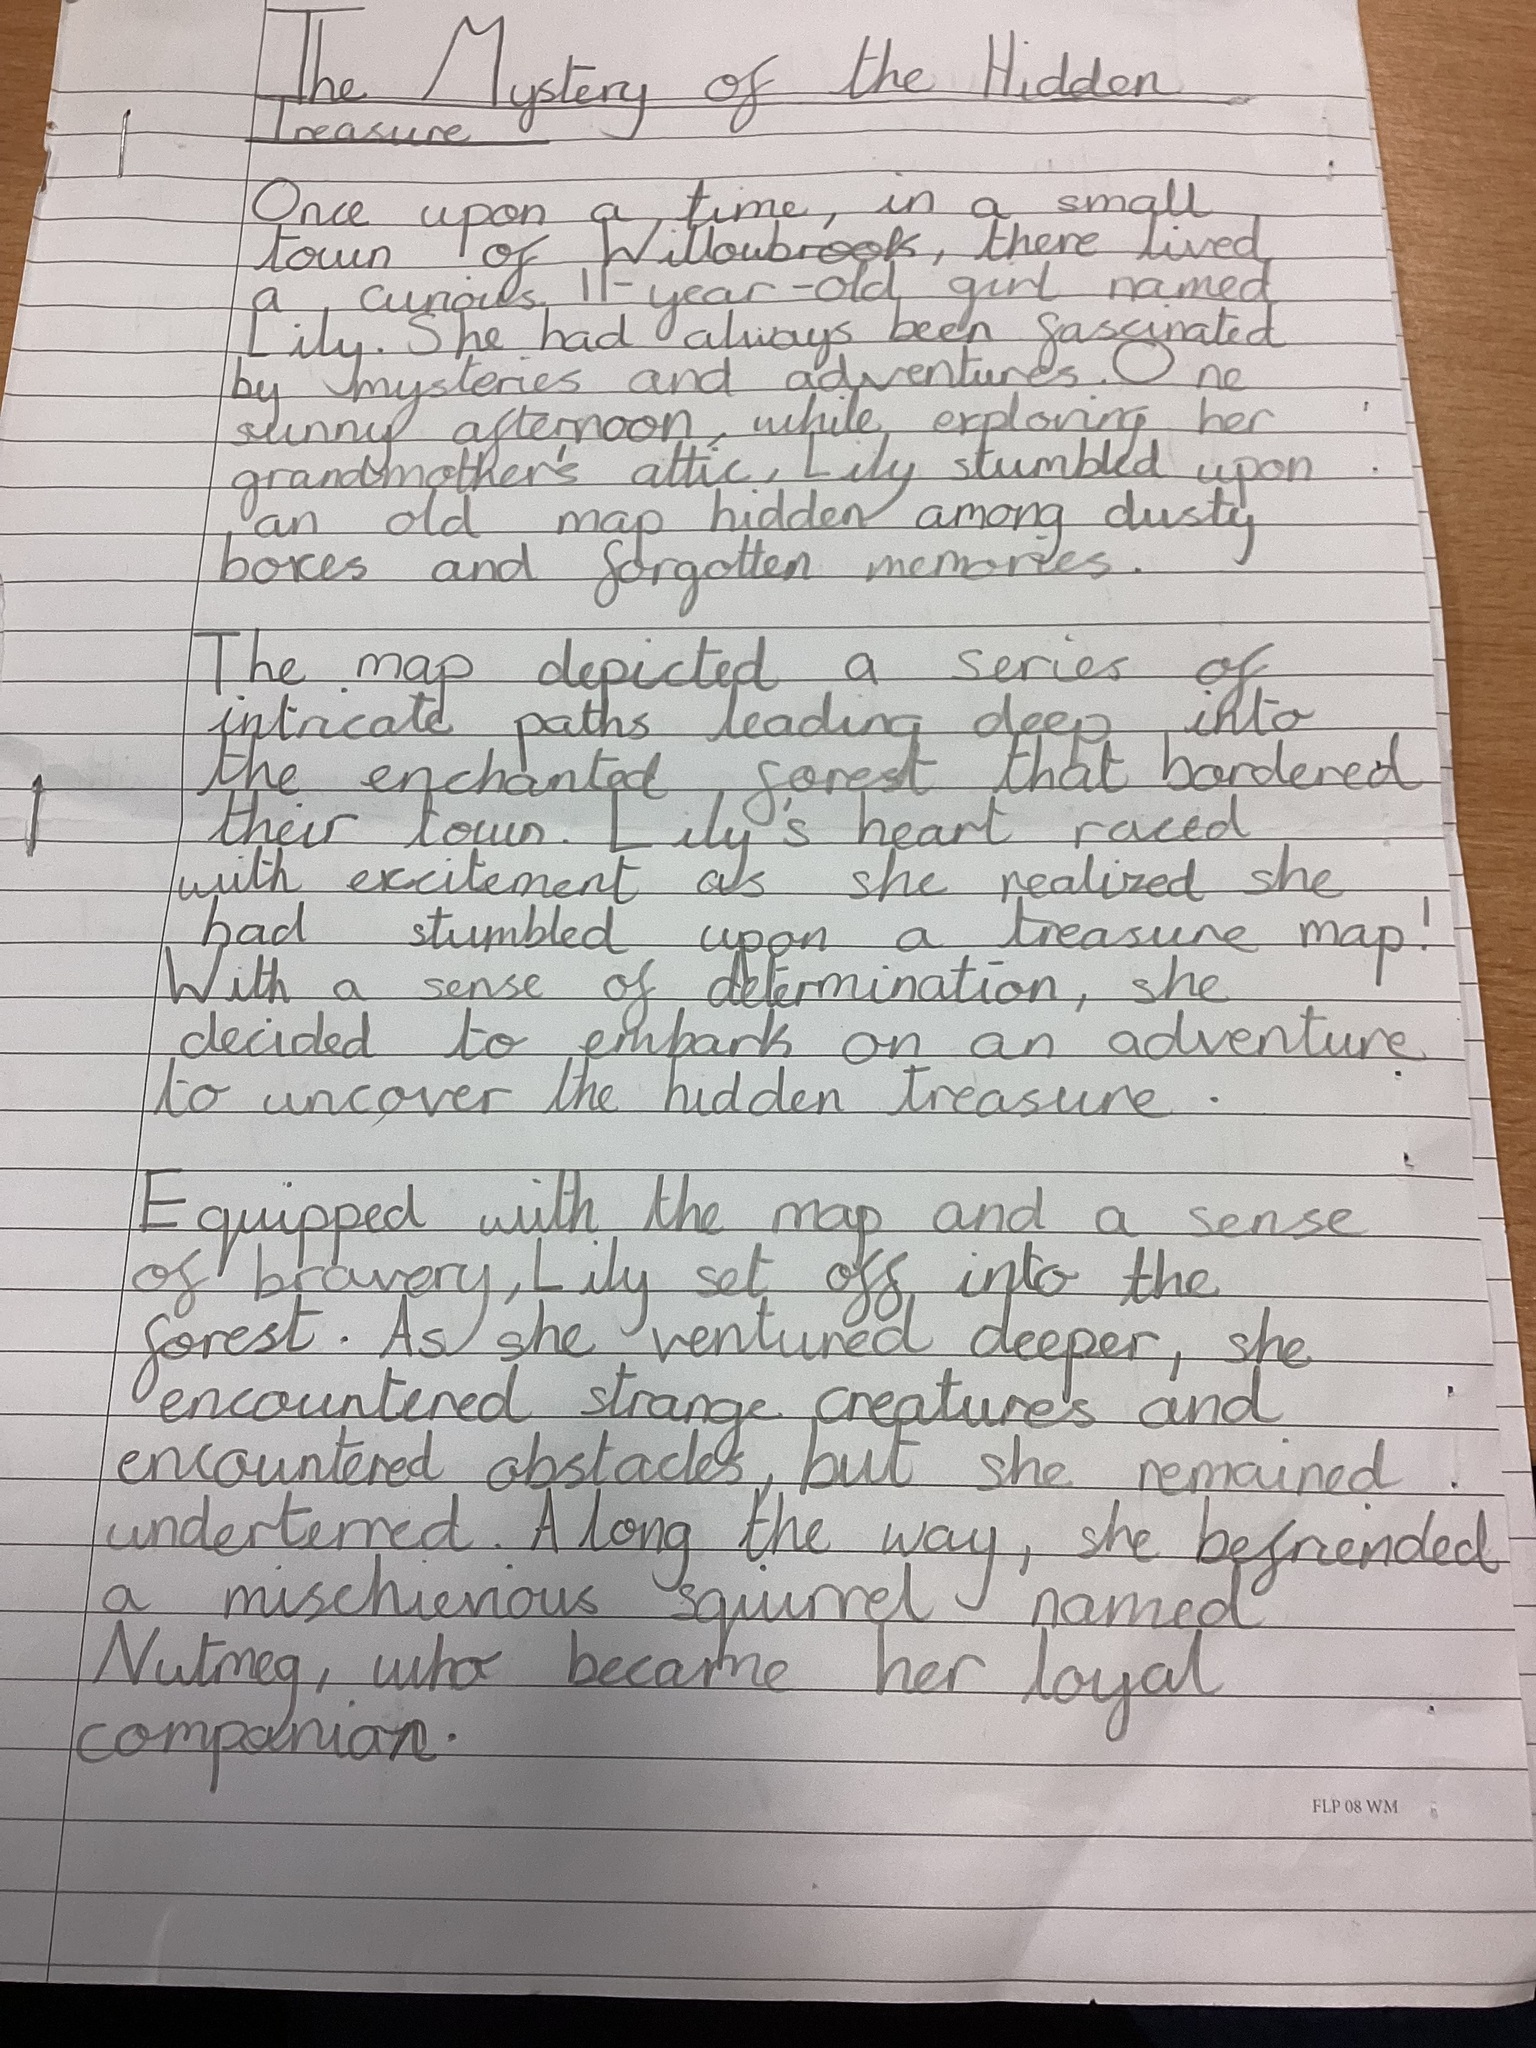 The Mystery of the Hidden
Treasure
Once upon a time, in a small
town of Willowbrook, there lived
a curious 11-year-old girl named
Lily. She had always been fascinated
by mysteries and adventures. One
sunny afternoon, while exploring her
grandmother's attic, Lily stumbled upon
an old map hidden among dusty
boxes and forgotten memories.
The map depicted a series of
intricate paths leading deep into
the enchanted forest that bordered
their town. Lily's heart raced
with excitement as she realized she
had stumbled upon a treasure map!
With a sense of determination, she
decided to embark on an adventure
to uncover the hidden treasure.
Equipped with the map and a sense
of bravery, Lily set off into the
forest. As she ventured deeper, she
encountered strange creatures and
encountered obstacles, but she remained
underterred. Along the way, she befriended
a mischievious squirrel named
Nutmeg, who became her loyal
companian.
FLP 08 WM